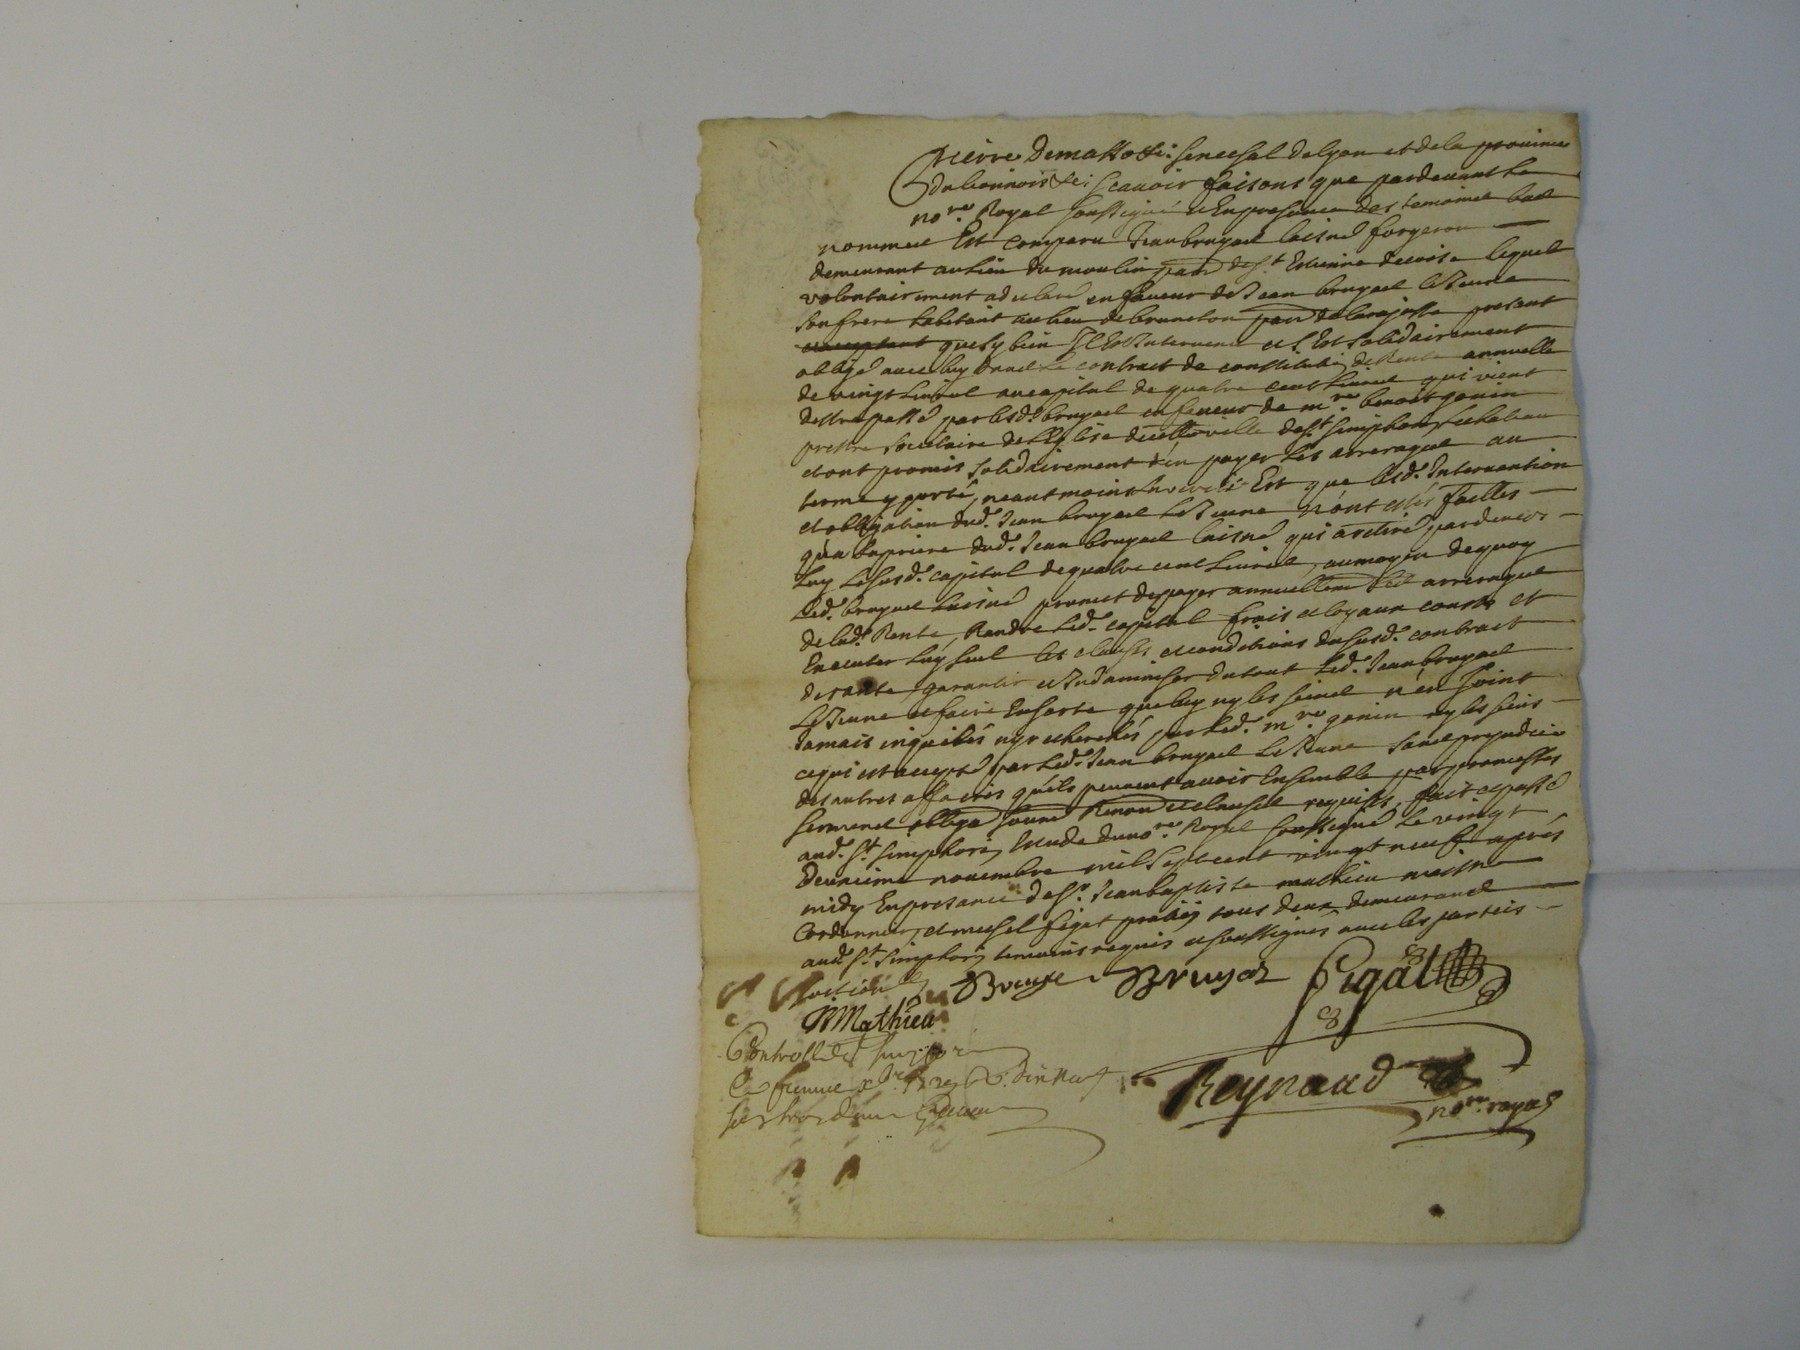 Pierre Demassotti senechal de lyon et de la province
du lionnois &c: scavoir faisons que pardevant le
no.re Royal soussigné et En presence des temoins bas
nommes Est comparu Jean bruyas laisné forgeron
demeurant au lieu du moulin parr. de St Estienne lequel
volontairement a declaré en faveur de Jean bruyas le Jeune
son frere habitant au lieu de bruneton parr. de larajasse present
et acceptant que sy bien Il Est Intervenu et s'Est solidairement
obligé avec luy dans le contract de constitution de Rente annuelle
de vingt Livres au capital de quatre cent Livres qui vient
destre passé par lesd. bruyas en faveur de m.re benoit gonin
prestre societaire de L'Eglise de cette ville de St simphorien le chateau
et ont promis solidairement d'en payer les arrerages au
terme y porté, neantmoins la verité Est que lesd. Intervention
et obligation dud. Jean bruyas le Jeune n'ont etés faittes
qu'a la priere dud. Jean bruyas laisné qui a retiré pardevers
Luy Le susd. capital de quatre cent Livres, au moyen de quoy
Led. bruyas laisné promet de payer annuellem.t les arrerages
de lad. Rente, Randre Led. capital frais et loyaux cousts et
Executer luy seul les clauses et conditions du susd. contract
de rante, garantir et Indamniser du tout Led. Jean bruyas
Le Jeune et faire En sorte que luy ny les siens n'en soint
Jamais inquietés ny recherchés par Led. m.re gonin ny les siens
ce qui est accepté par Led. Jean bruyas le Jeune sans prejudice
des autres affaires qu'ils peuvent avoir Ensemble par promesses
sermens obliga. soum. Renon. et clauses requises, fait et passé
aud. St simphorien Estude du no.re Royal soussigné Le vingt
deuxieme novembre mil sept cent vingt neuf après
midy En presance de Sr. Jean baptiste mathieu maitre
Cordonnier, et michel pigat praticien tous deux demeurants
aud. St simphorien temoins requis et soussignés avec les parties
Bruyas Bruyas Pigat
Mathieu
Controllé à St
Reynaud
no.re royal